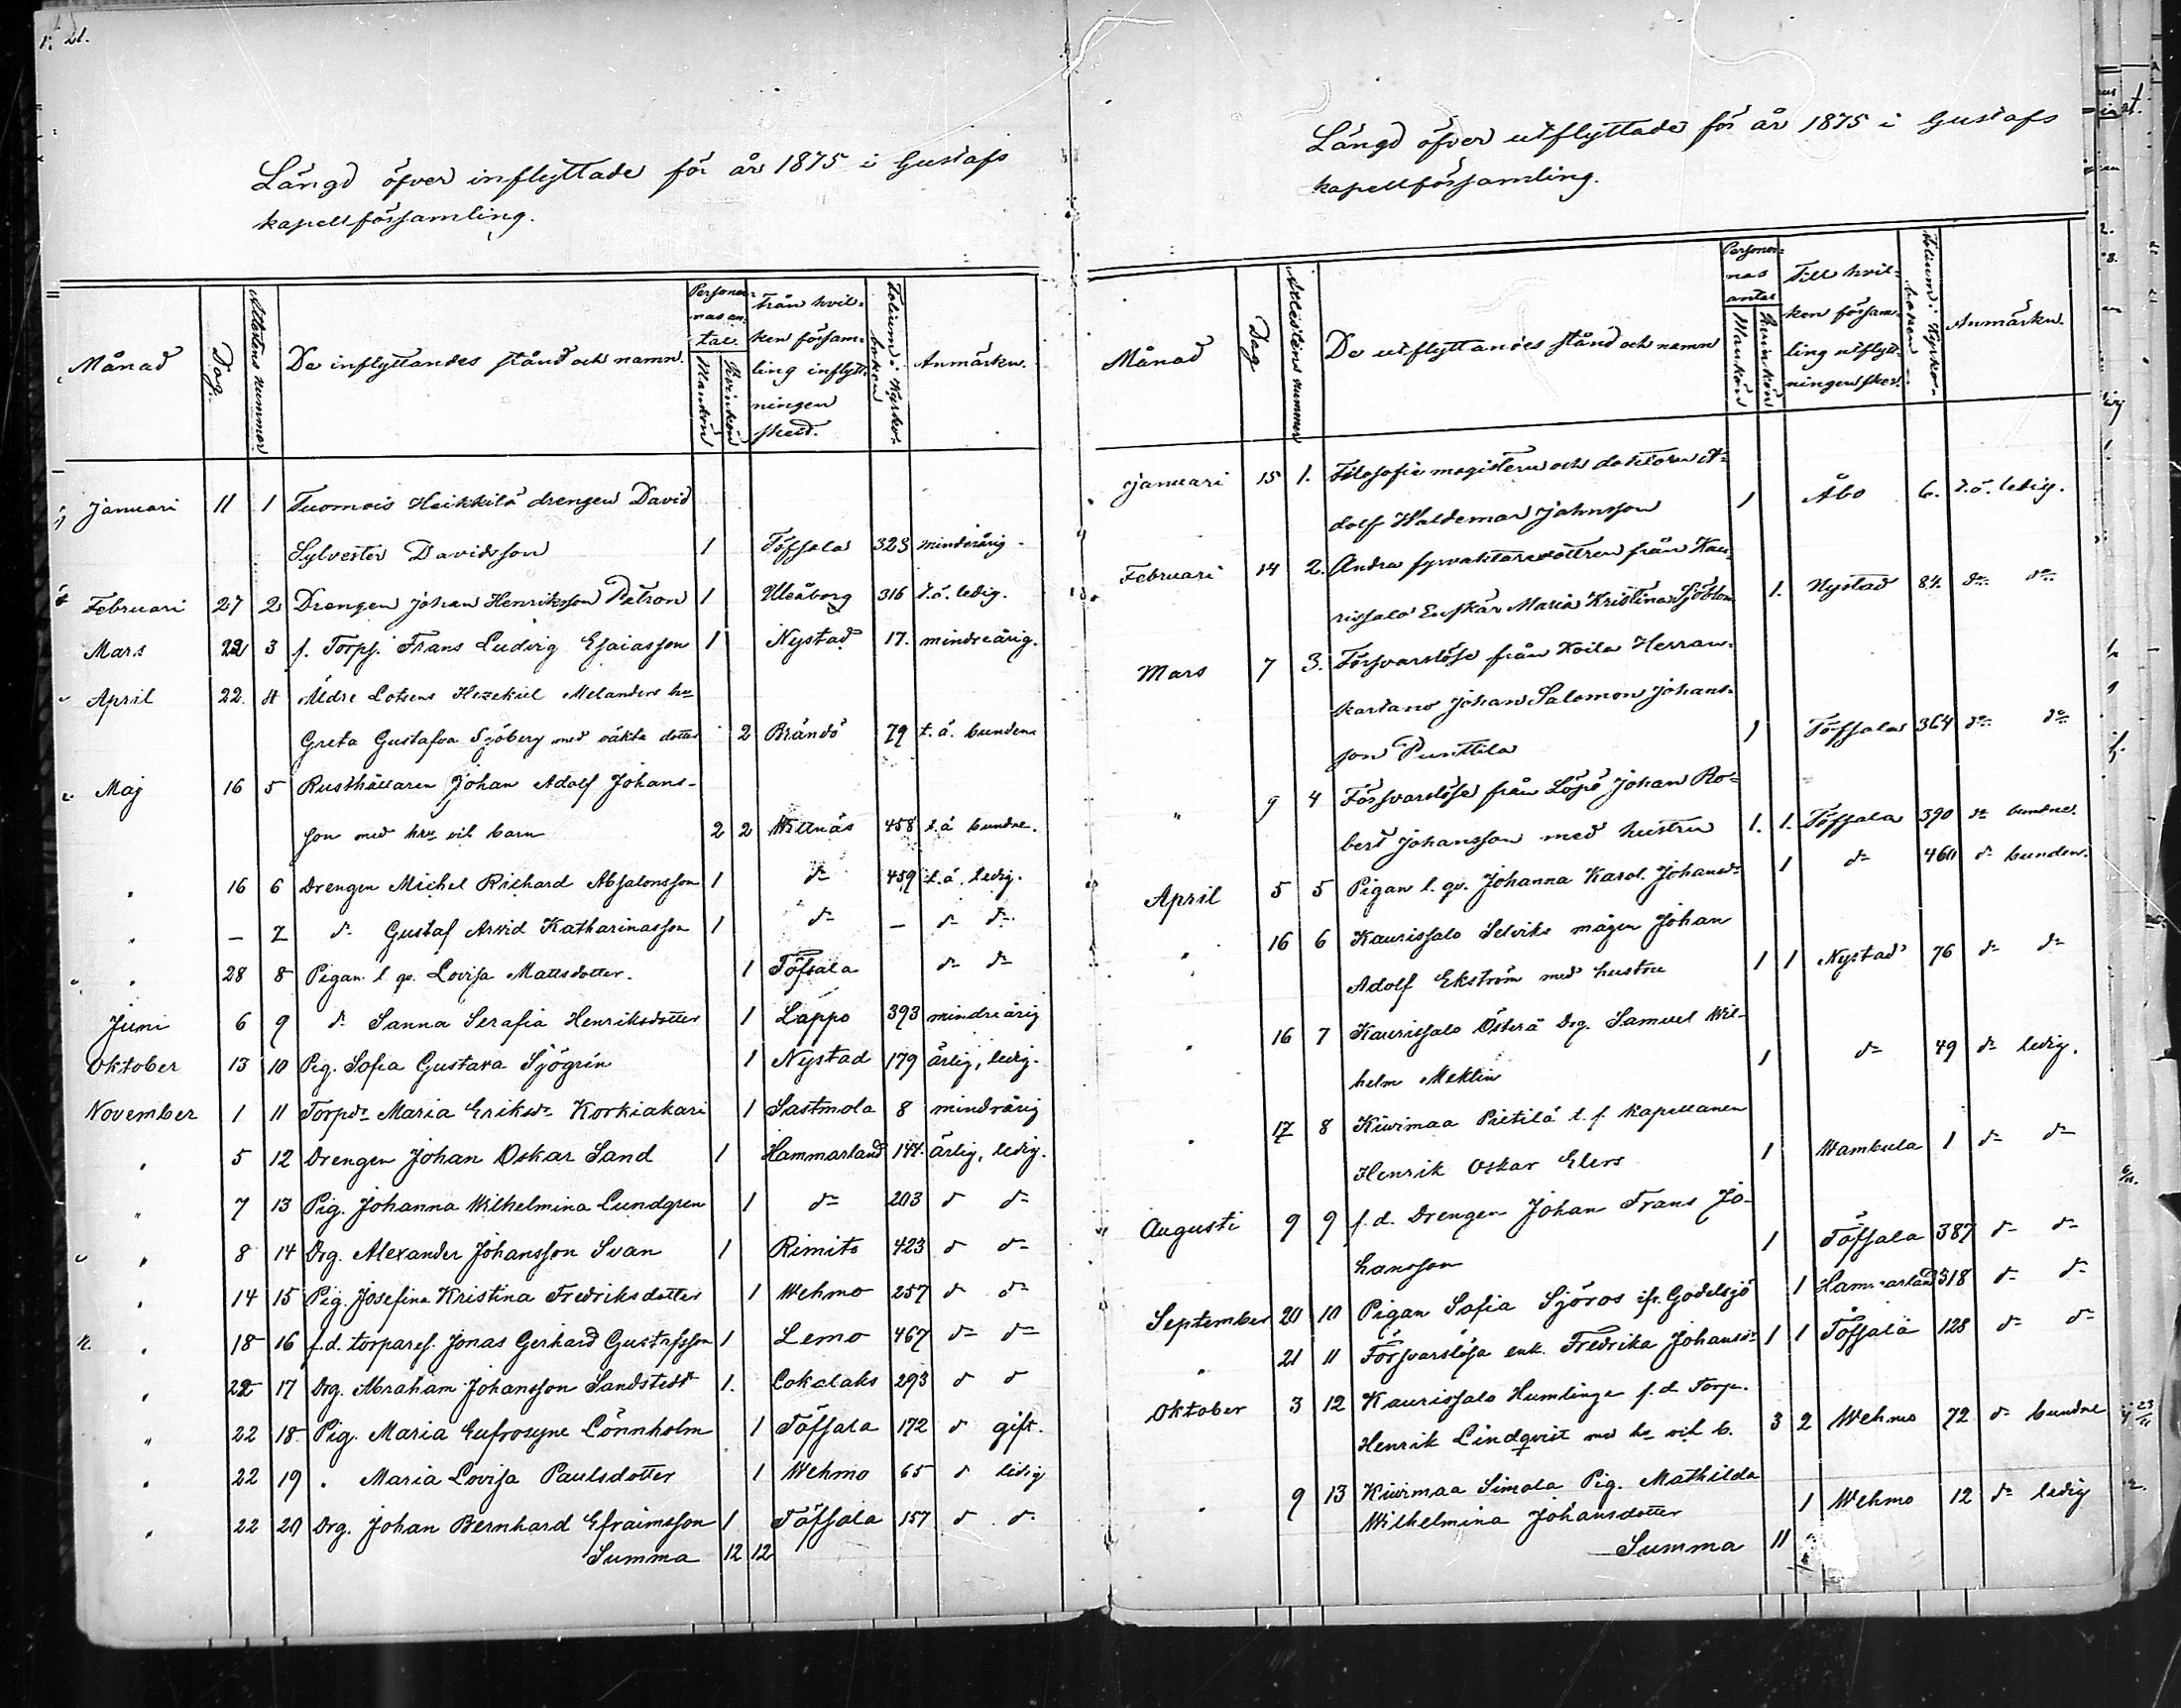 Längd öfver inflyttade för år 1875 i Gustafs
kapellförsamling.
Månad Dag. Attestens nummer De inflyttandes stånd och namn. Personernas antal. Mankön Kvinkön Från hvilken församling inflyttningen skett. Folium i kyrkoboken Anmärkn.
Januari 11 1 Tuomois Heikkilä drengen David
Sylvester Davidsson 1 Töfsala 323 minderårig
Februari 27 2 Drengen Johan Henriksson Patron 1 Uleåborg 316 t.ä. ledig.
Mars 22 3 f. Torpf. Frans Ludvig Esaiasson 1 Nystad 17. mindreårig.
April 22. 4 Äldre Lotsens Hezekiel Melanders hu
Greta Gustafva Sjöberg med oäkta dotter 2 Brändö 79 t.ä. bundena
Maj 16 5 Rusthållaren Johan Adolf Johans-
son med hru o til barn 2 2 Willnäs 458 t.ä bundne.
" 16 6 Drengen Michel Richard Absalonsson 1 do 459 t.ä. ledig.
" — 7 do Gustaf Arvid Katharinasson 1 do — do do
" 28 8 Pigan l. qv. Lovisa Mattsdotter. 1 Töfsala do do
Juni 6 9 do Sanna Serafia Henriksdotter 1 Lappo 393 mindreårig
Oktober 13 10 Pig. Sofia Gustava Sjögrén 1 Nystad 179 ärlig, ledig.
November 1 11 Torpdr Maria Eriksdr Korkiakari 1 Sastmola 8 mindrårig
" 5 12 Drengen Johan Oskar Sand 1 Hammarland 144. ärlig, ledig.
" 7 13 Pig. Johanna Wilhelmina Lundgren 1 do 203 do do
" 8 14 Drg. Alexander Johansson Svan 1 Rimito 423 do do
" 14 15 Pig. Josefina Kristina Fredriksdotter 1 Wehmo 257 do do
" 18 16 f.d. torparef. Jonas Gerhard Gustafsson 1 Lemo 467 do do
" 22 17 Drg. Abraham Johansson Sandstedt 1. Lokalaks 293 do do
" 22 18 Pig. Maria Eufrosyne Lönnholm 1 Töfsala 172 do gift.
" 22 19 " Maria Lovisa Paulsdotter 1 Wehmo 65 do ledig
" 22 20 Drg. Johan Bernhard Efraimsson 1 Töfsala 157 do do
Summa 12 12
Längd öfver utflyttade för år 1875 i Gustafs
kapellförsamling.
Månad Dag Attestens nummer De utflyttandes stånd och namn Personernas antal Mankön Qvinkön Till hvilken församling utflyttningen sker. Folium i kyrkoboken Anmärkn.
Januari 15 1. Filosofie magistern och doktorn A-
dolf Waldemar Johnsson 1 Åbo 6. t.ä. ledig.
Februari 14 2. Andra fyrvaktaredottren från Kau-
rissalo Enskär Maria Kristina Sjöblom 1. Nystad 84. do do
Mars 7 3. Försvarslöse från Koila Herran-
kartano Johan Salomon Johans-
son Punttila 1 Töfsala 364 do do
" 9 4 Försvarslöse från Löpö Johan Ro-
bert Johansson med hustru 1. 1. Töfsala 390 do bundne.
April 5 5 Pigan l. qv. Johanna Karol. Johansdr 1 do 460 do bunden.
" 16 6 Kaurissalo Selviks mågen Johan
Adolf Ekström med hustru 1 1 Nystad 76 do do
" 16 7 Kaurissalo Österå Drg. Samuel Wil-
helm Meklin 1 do 49 do ledig.
" 17 8 Kiwimaa Pietilä t. f. Kapellanen
Henrik Oskar Elers 1 Wambula 1 do do
Augusti 9 9 f.d. Drengen Johan Frans Jo-
hansson 1 Töfsala 387 do do
September 20 10 Pigan Sofia Sjöros ifr. Godelsjö 1 Hammarland 318 do do
" 21 11 Försvarslösa enk. Fredrika Johansdr 1 1 Töfsala 128 do do
Oktober 3 12 Kaurissalo Humlinge f.d. Torp.
Henrik Lindqvist med hu o til b. 3 2 Wehmo 72 do bundne
" 9 13 Kiwimaa Simola Pig. Mathilda
Wilhelmina Johansdotter 1 Wehmo 12 do ledig
Summa 11